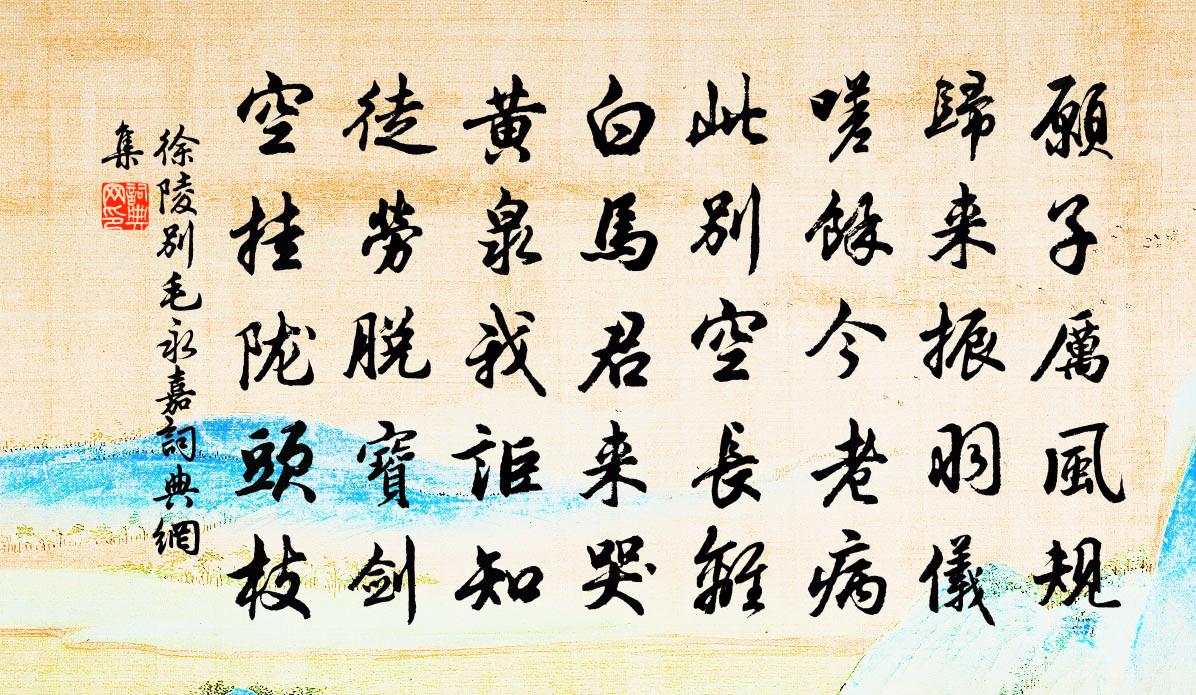 願子厲風規
歸来振羽儀
嗟餘今老病
此別空長離
白馬君来哭
黄泉我詎知
徒勞脱寶劍
空挂陇頭枝
徐陵別毛永嘉詞典網
集
詞典
网印